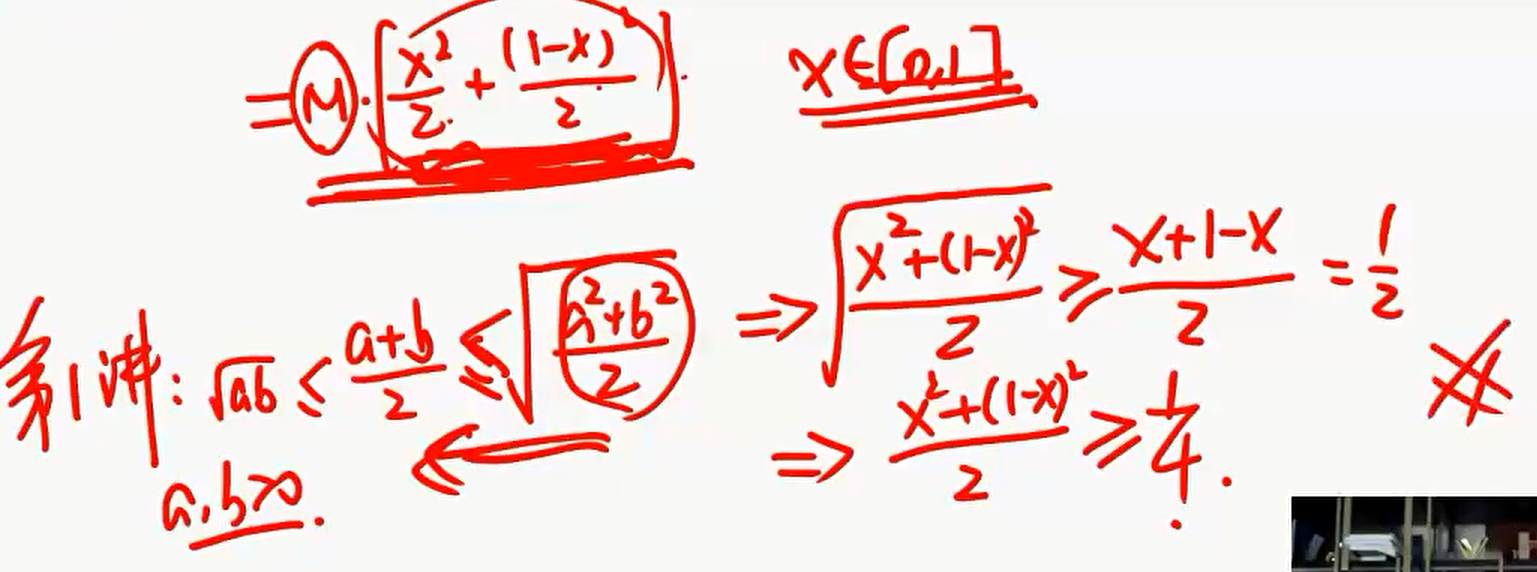 = M·[x²/2 + (1-x)/2]. x∈[0,1]
第1讲: √ab ≤ (a+b)/2 ≤ √((a²+b²)/2) ⇒ √((x²+(1-x)²)/2) ≥ (x+1-x)/2 = 1/2
a,b>0. ⇒ (x²+(1-x)²)/2 ≥ 1/4.